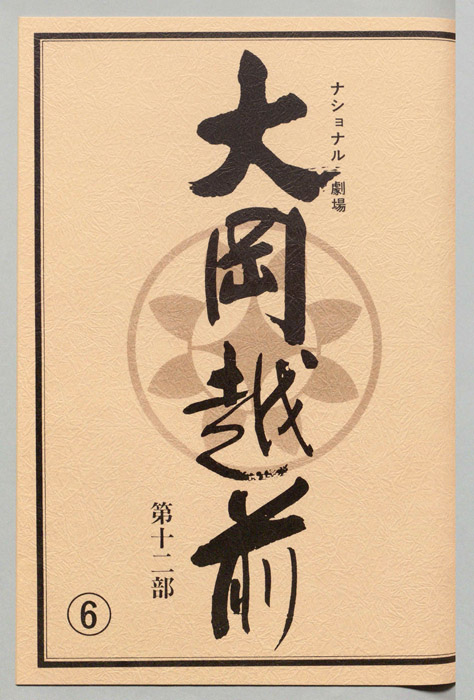 ナショナル劇場
大岡越前
第十二部
⑥